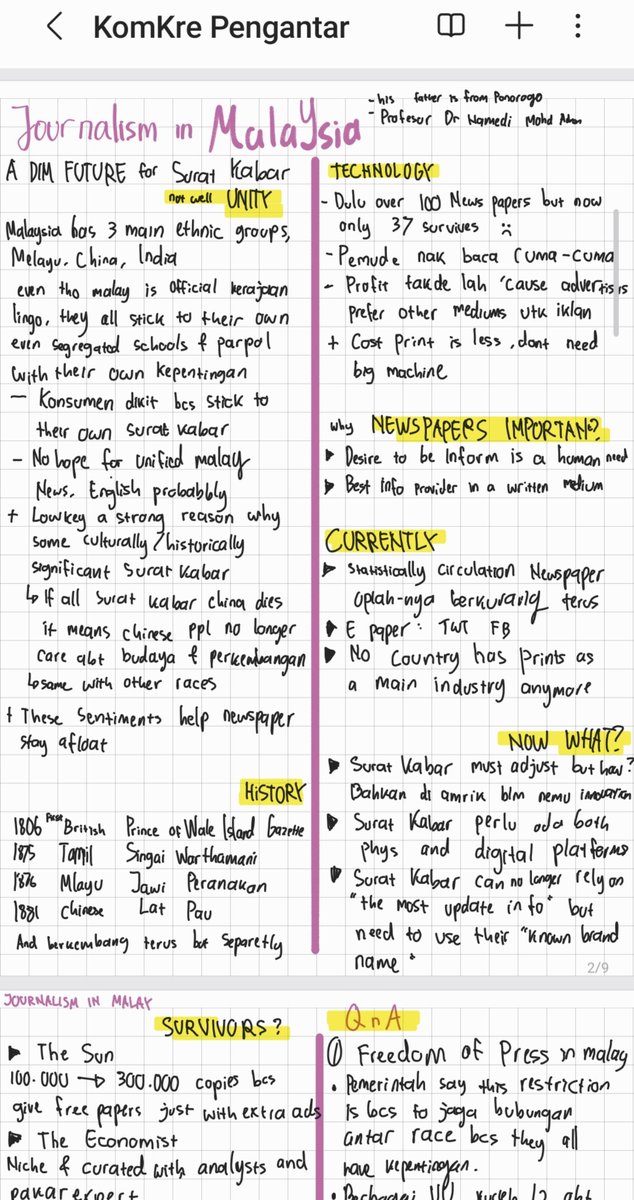 KomKre Pengantar
Journalism in Malaysia
- his father is from Ponorogo
- Profesor Dr Hamedi Mohd
A DIM FUTURE for Surat Kabar
not well UNITY
Malaysia has 3 main ethnic groups,
Melayu, China, India
even tho malay is official kerajaan
lingo, they all stick to their own
even segregated schools & parpol
with their own kepentingan
- Konsumen dikit bcs stick to
their own surat kabar
- No hope for unified malay
News. English probabbly
+ Lowkey a strong reason why
some culturally/historically
significant surat kabar
↳ If all surat kabar china dies
it means chinese ppl no longer
care abt budaya & perkembangan
↳ same with other races
+ These sentiments help newspaper
stay afloat
HISTORY
1806 First British Prince of Wale Island Gazette
1875 Tamil Singai Warthamani
1876 Mlayu Jawi Peranakan
1881 Chinese Lat Pau
And berkembang terus but separetly
TECHNOLOGY
- Dulu over 100 News papers but now
only 37 survives :(
- Pemude nak baca cuma-cuma
- Profit takde lah 'cause advertisis
prefer other mediums utk iklan
+ Cost Print is less, dont need
big machine
why NEWSPAPERS IMPORTAN?
▶ Desire to be inform is a human need
▶ Best info provider in a written medium
CURRENTLY
▶ Statistically circulation Newspaper
oplah-nya berkurang terus
▶ E paper: TWT FB
▶ No Country has prints as
a main industry anymore
NOW WHAT?
▶ Surat Kabar must adjust but how?
Bahkan di amrik blm nemu innovation
▶ Surat Kabar perlu ada both
phys and digital platforms
▶ Surat Kabar can no longer rely on
"the most update info" but
need to use their "known brand
name"
2/9
JOURNALISM IN MALAY
SURVIVORS?
▶ The Sun
100.000 → 300.000 copies bcs
give free papers just with extra ads
▶ The Economist
Niche & curated with analysts and
pakar expert
QnA
① Freedom of Press in malay
• Pemerintah say this restriction
is bcs to jaga hubungan
antar race bcs they all
have kepentingan.